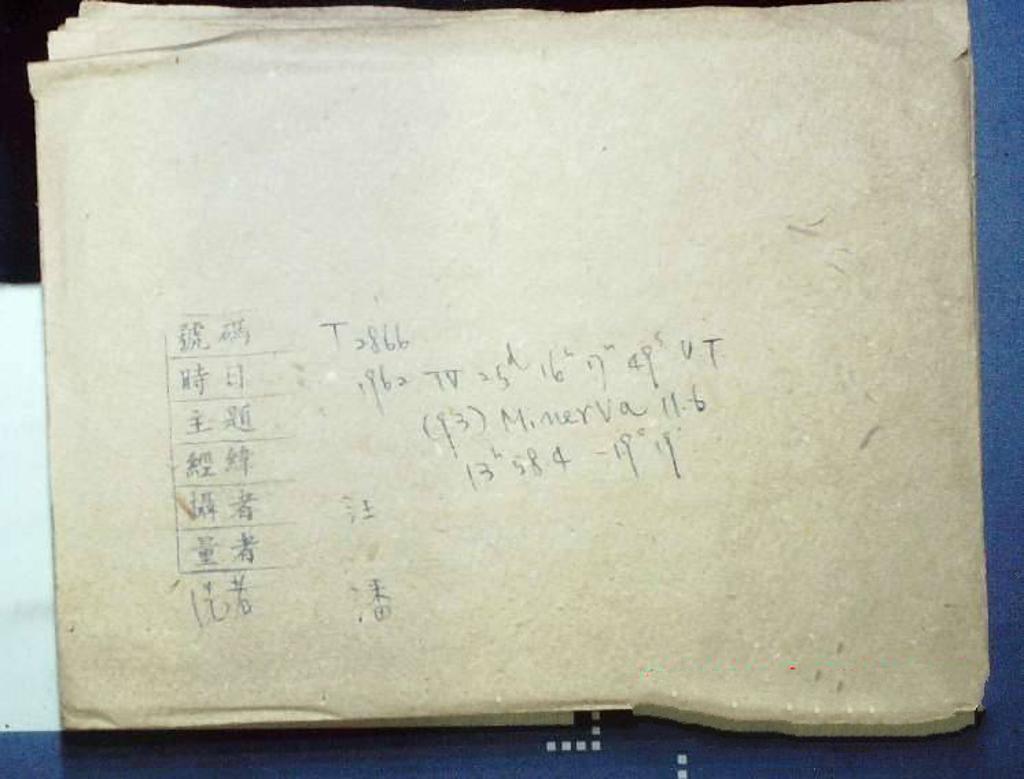 號碼 T 2866
時日 1962 IV 25ᵈ 16ʰ 17ᵐ 49ˢ UT
主題 (93) Minerva 11.6
經緯 13ʰ 58.4 -19° 19'
攝者 汪
量者
潘